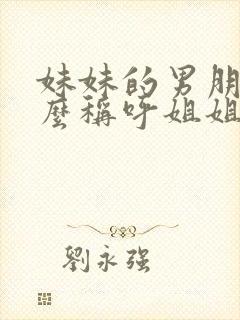 妹妹的男朋
麼稱呼姐姐
劉永强